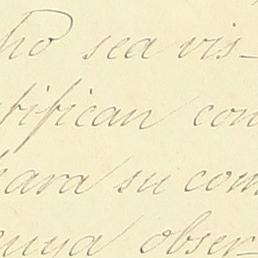 ho sea vis-
tifican con
para su com
enuya obser-